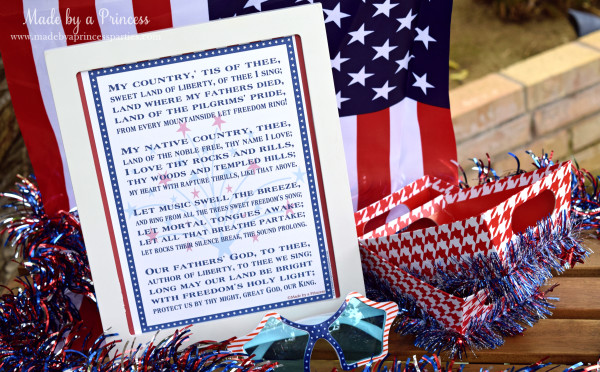 Made by a Princess
www.madebyaprincessparties.com
My country,' tis of thee,
sweet land of liberty, of thee I sing;
land where my fathers died,
land of the pilgrims' pride,
from every mountainside let freedom ring!
My native country, thee,
land of the noble free, thy name I love;
I love thy rocks and rills,
thy woods and templed hills;
my heart with rapture thrills, like that above.
Let music swell the breeze,
and ring from all the trees sweet freedom's song;
let mortal tongues awake;
let all that breathe partake;
let rocks their silence break, the sound prolong.
Our fathers' God, to thee,
author of liberty, to thee we sing;
long may our land be bright
with freedom's holy light;
protect us by thy might, great God, our King.
©Made by a Princess